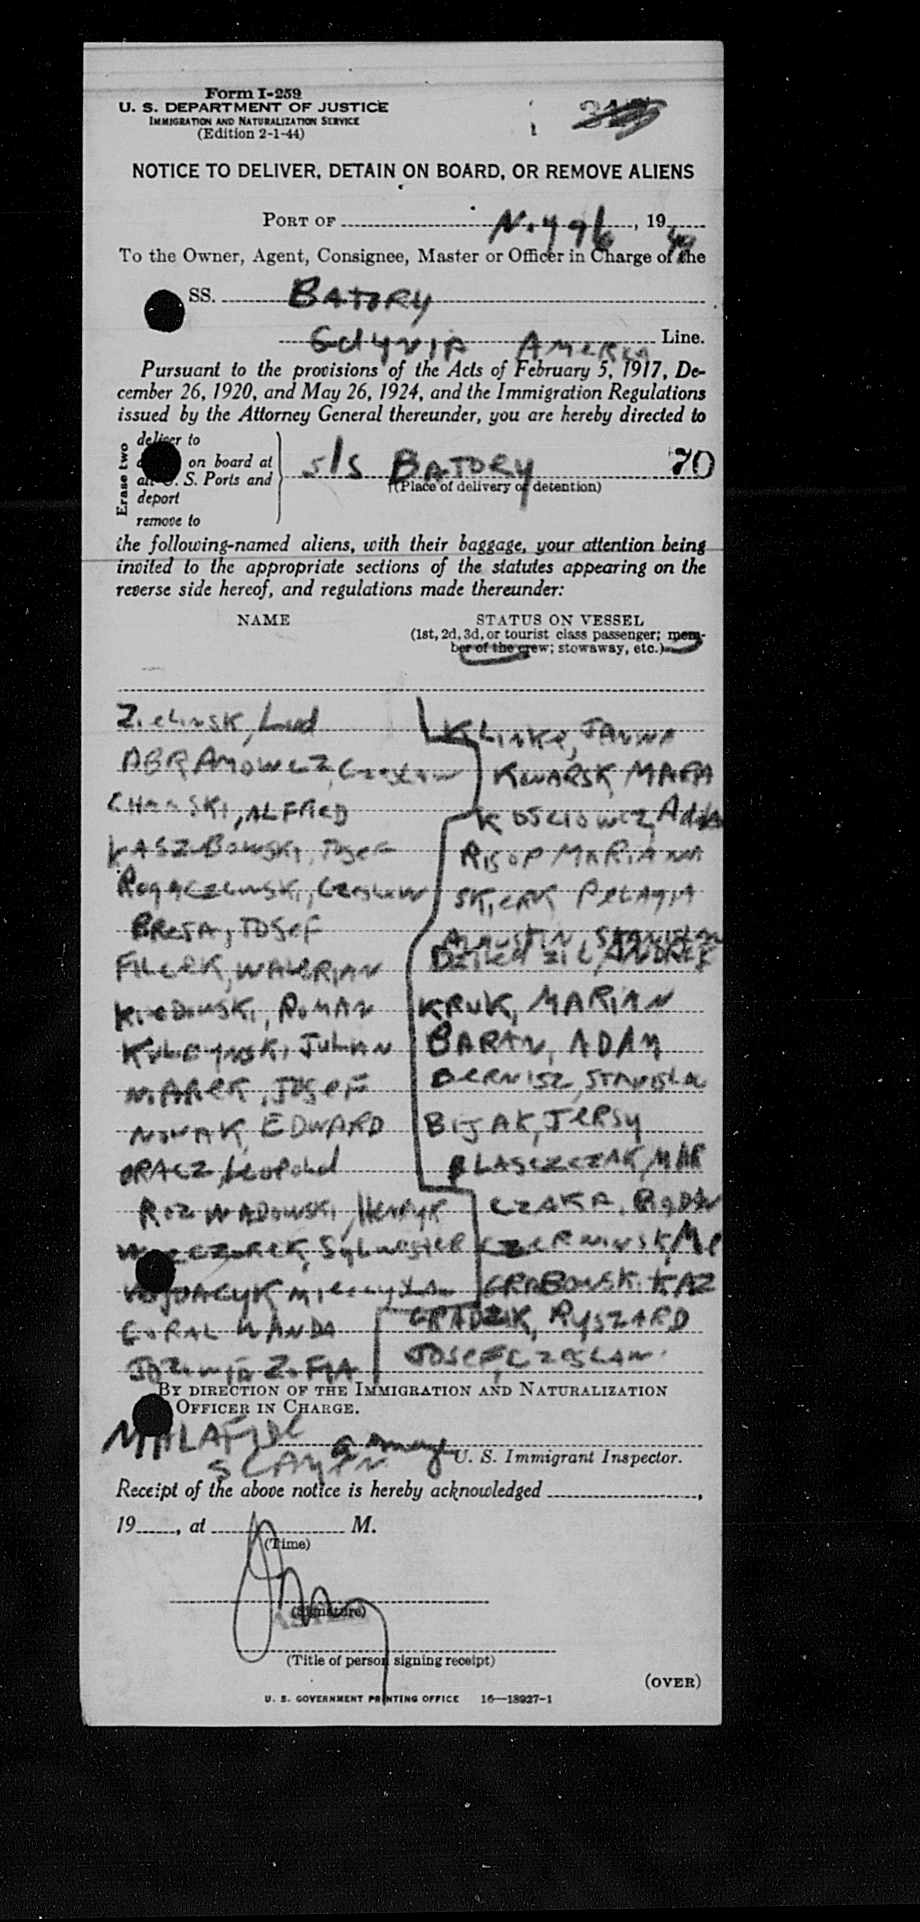 Form I-259
U. S. DEPARTMENT OF JUSTICE
IMMIGRATION AND NATURALIZATION SERVICE
(Edition 2-1-44)
NOTICE TO DELIVER, DETAIN ON BOARD, OR REMOVE ALIENS
PORT OF N.Y 9/6, 1949
To the Owner, Agent, Consignee, Master or Officer in Charge of the
SS. BATORY
Gdynia America Line.
Pursuant to the provisions of the Acts of February 5, 1917, De-
cember 26, 1920, and May 26, 1924, and the Immigration Regulations
issued by the Attorney General thereunder, you are hereby directed to
Erase two
deliver to
on board at
all U. S. Ports and
deport
remove to
s/s BATORY 70
(Place of delivery or detention)
the following-named aliens, with their baggage, your attention being
invited to the appropriate sections of the statutes appearing on the
reverse side hereof, and regulations made thereunder:
NAME STATUS ON VESSEL
(1st, 2d, 3d, or tourist class passenger; mem-
ber of the crew; stowaway, etc.)
Zielinsk, Lud
ABRAMOWCZ, Czeslaw
ALFRED
KASZUBOWSKI, Josef
Czeslaw
BRESA, JOSEF
FILCEK, WALERIAN
ROMAN
JULIAN
MAREK, JOSEF
NOVAK, EDWARD
ORACZ, Leopold
ROZWADOWSKI, HENRYK
Sylwester
GORAL WANDA
ZOFIA
KLINKE, JANINA
KWARSK, MARIA
KOSCIOWCZ, Adam
RISOP MARIANNA
PELAGIA
AUGUSTIN, STANISLAW
ANDREJ
KRUK, MARIAN
BARAN, ADAM
BERNISZ, STANISLA
BIJAK, JERSY
BLASCZCZAK, MAR
CZAKA, BOGDAN
CZERNINSK,
GRABOWSK. KAZ
GRADZIK, RYSZARD
JOSEF, CZESLAW
BY DIRECTION OF THE IMMIGRATION AND NATURALIZATION
OFFICER IN CHARGE.
MALAFIDE
SEAMEN
U. S. Immigrant Inspector.
Receipt of the above notice is hereby acknowledged ,
19 , at M.
(Time)
(Signature)
(Title of person signing receipt)
(OVER)
U. S. GOVERNMENT PRINTING OFFICE 16—18927-1